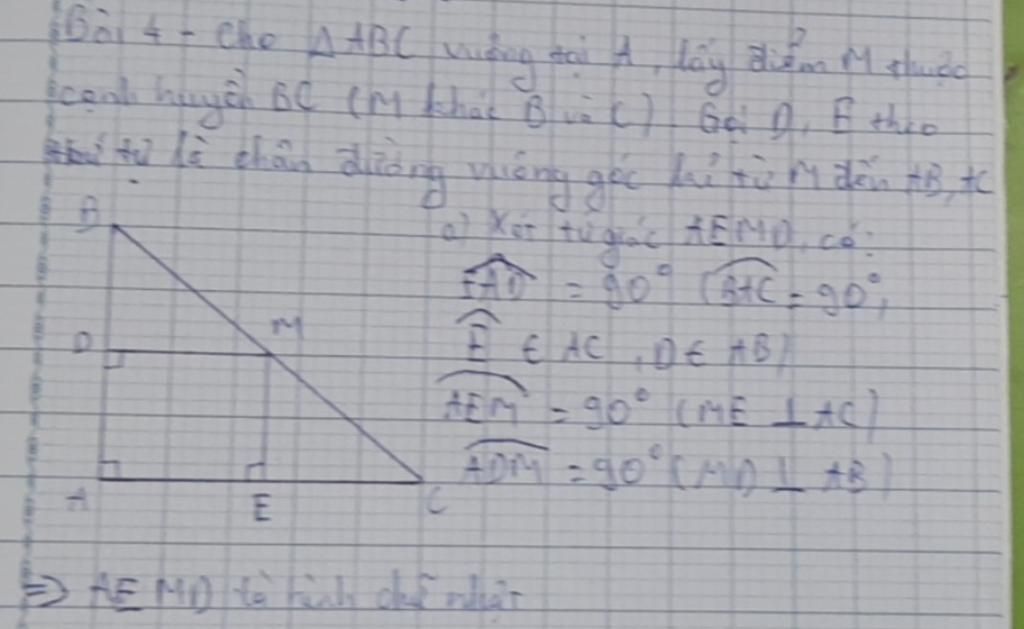 Bài 4 - Cho △ABC vuông tại A, lấy điểm M thuộc
cạnh huyền BC (M khác B và C) Gọi D, E theo
thứ tự là chân đường vuông góc kẻ từ M đến AB, AC
B
a) Xét tứ giác AEMD, có:
EAD = 90° (BAC = 90°,
M
E ∈ AC, D ∈ AB)
D
AEM = 90° (ME ⊥ AC)
ADM = 90° (MD ⊥ AB)
A
E
C
=> AEMD là hình chữ nhật